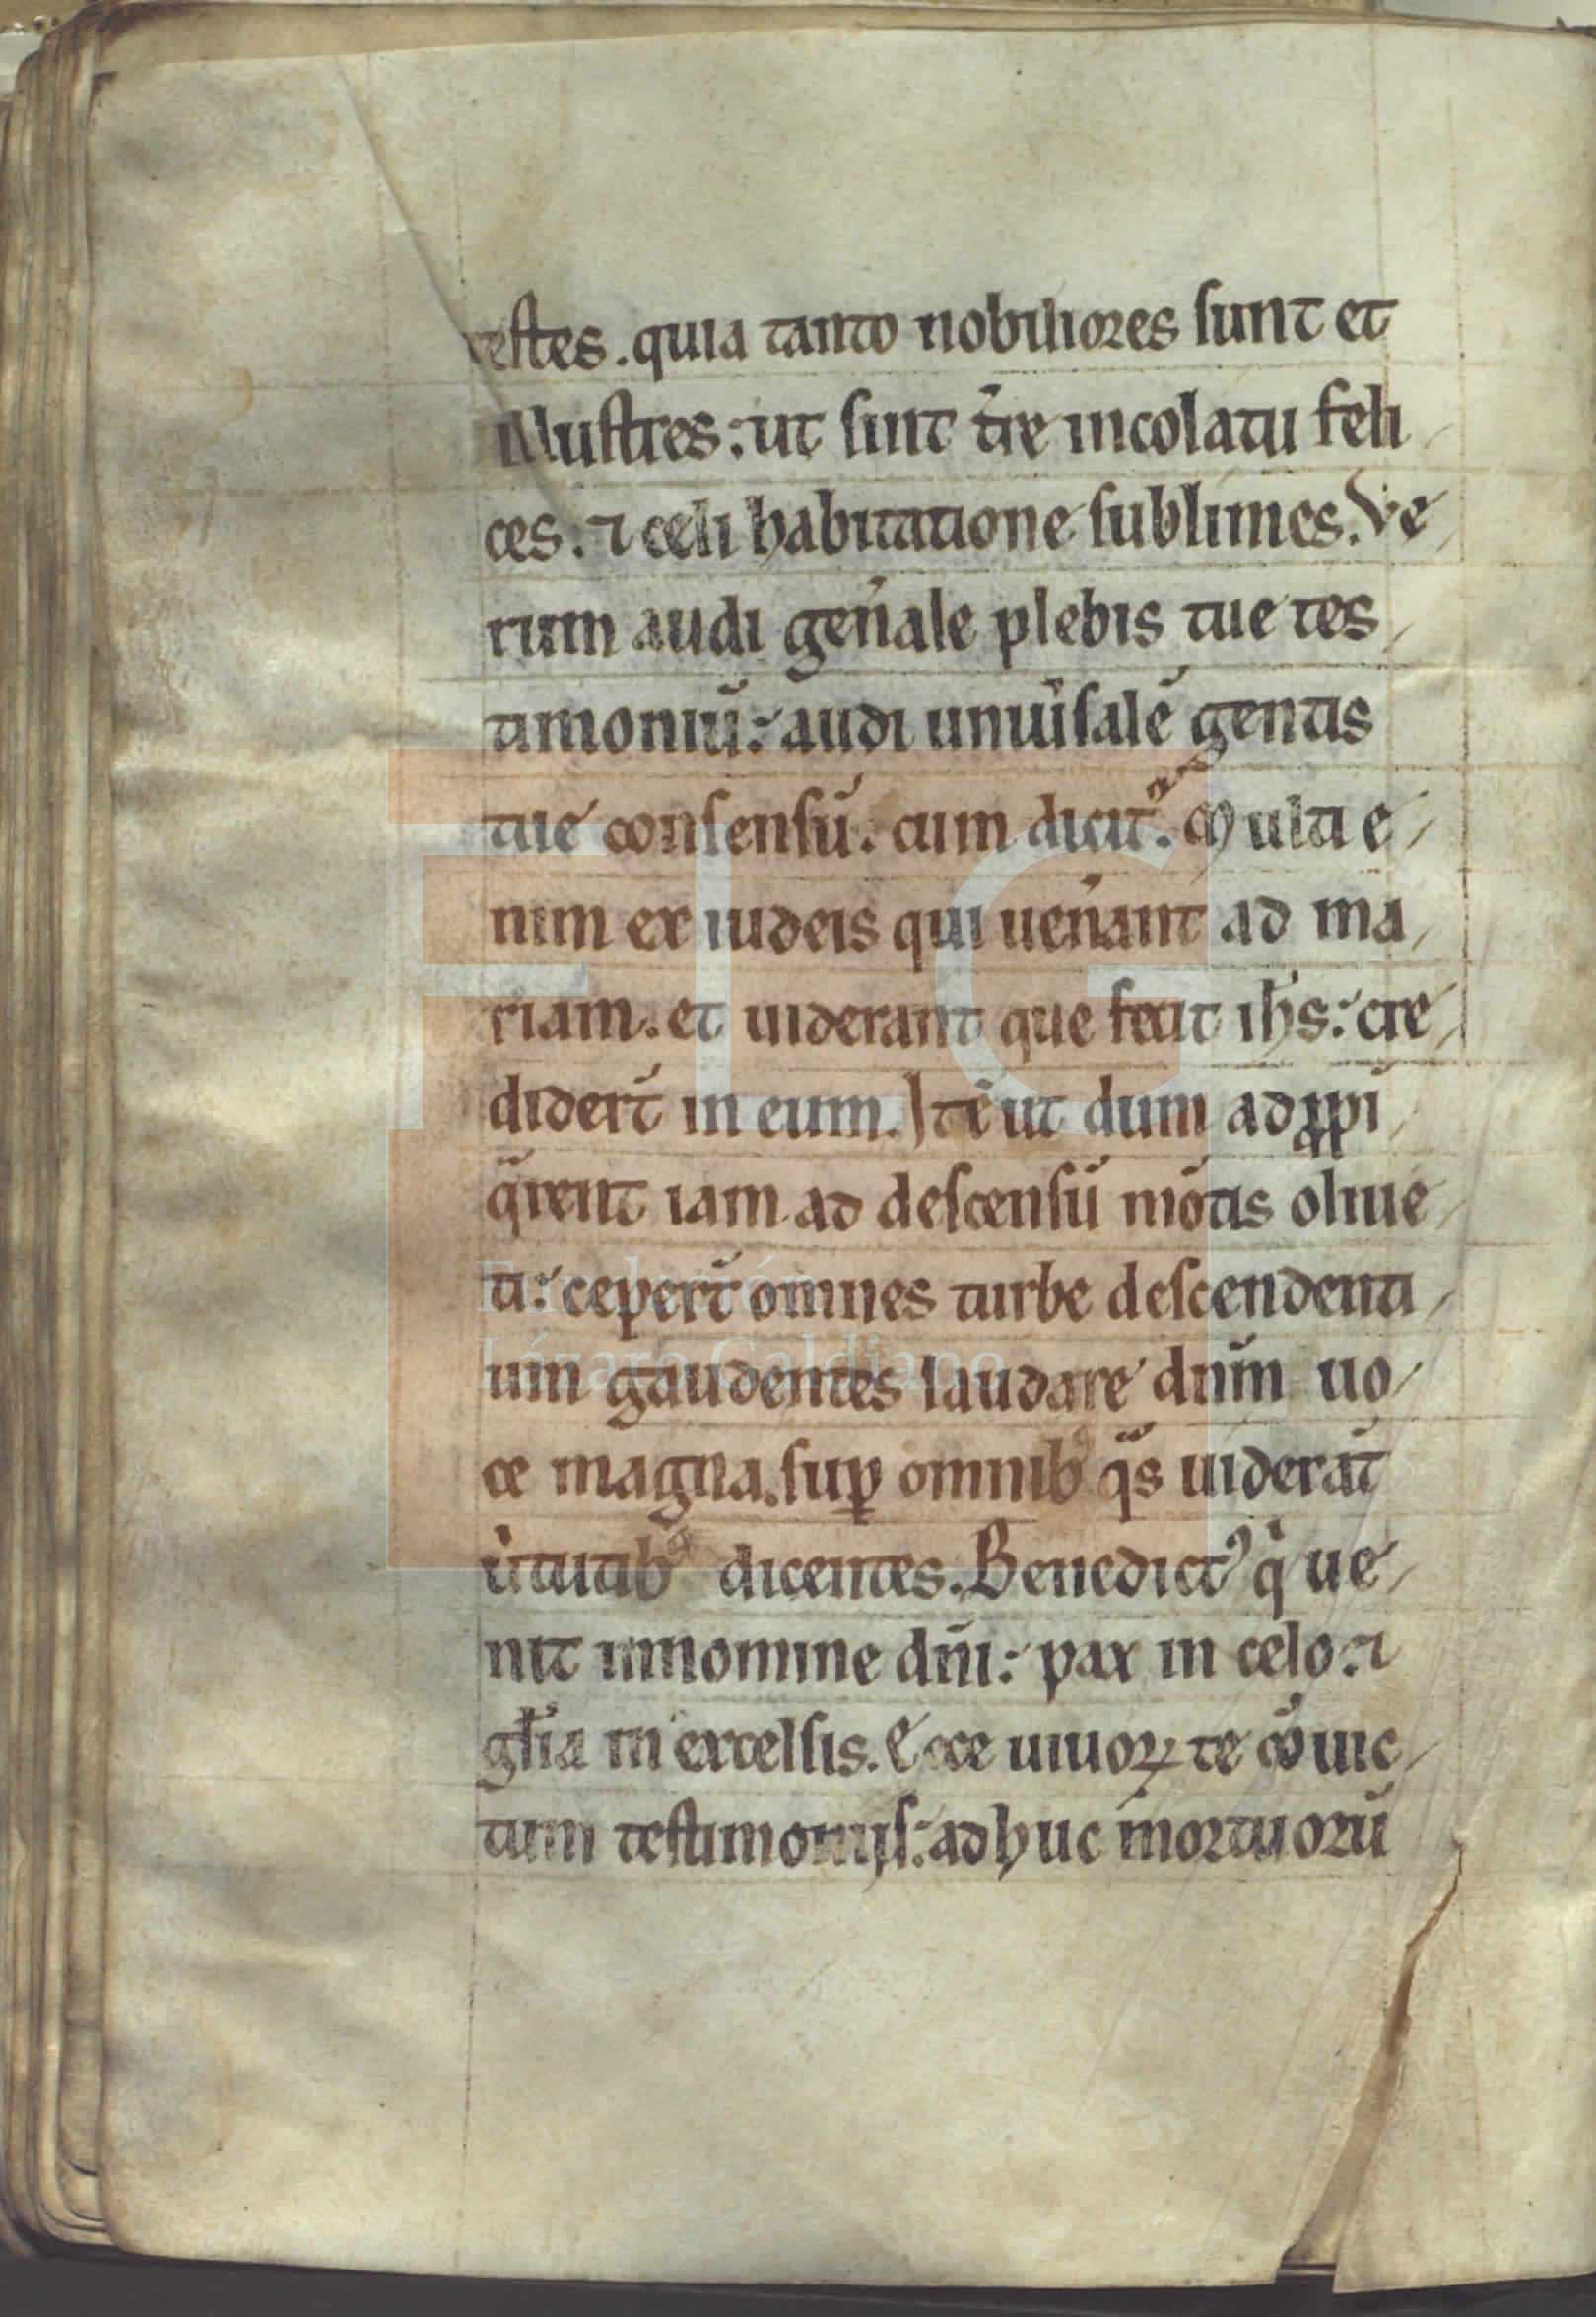 testes. quia tanto nobiliores sunt et
illustres: ut sint t̄re incolatu feli
ces. ⁊ celi habitatione sublimes. Ve
rum audi gen̄ale plebis tue tes
timoniū: audi uniu̾salē gentis
tue consensū. cum dicit᷑. Multi e
nim ex iudeis qui uen̄ant ad ma
riam. et uiderant que fecit ih̄s: cre
didert̄ in eum. Itē ut dum adꝓpi
q̈rent iam ad descensū mōtis oliue
ti: cepert̄ omnes turbe descendenti
um gaudentes laudare dn̄m uo
ce magna. suꝑ omnibꝰ q̈s uiderāt
u̾tutibꝰ dicentes. Benedictꝰ q̇ ue
nit innomine dn̄i: pax in celo: ⁊
gl̄ia in excelsis. Ecce uiuoꝝ te ꝯuic
tum testimoniis: adhuc mortuorū
FLG
Fundación
Lázaro Galdiano